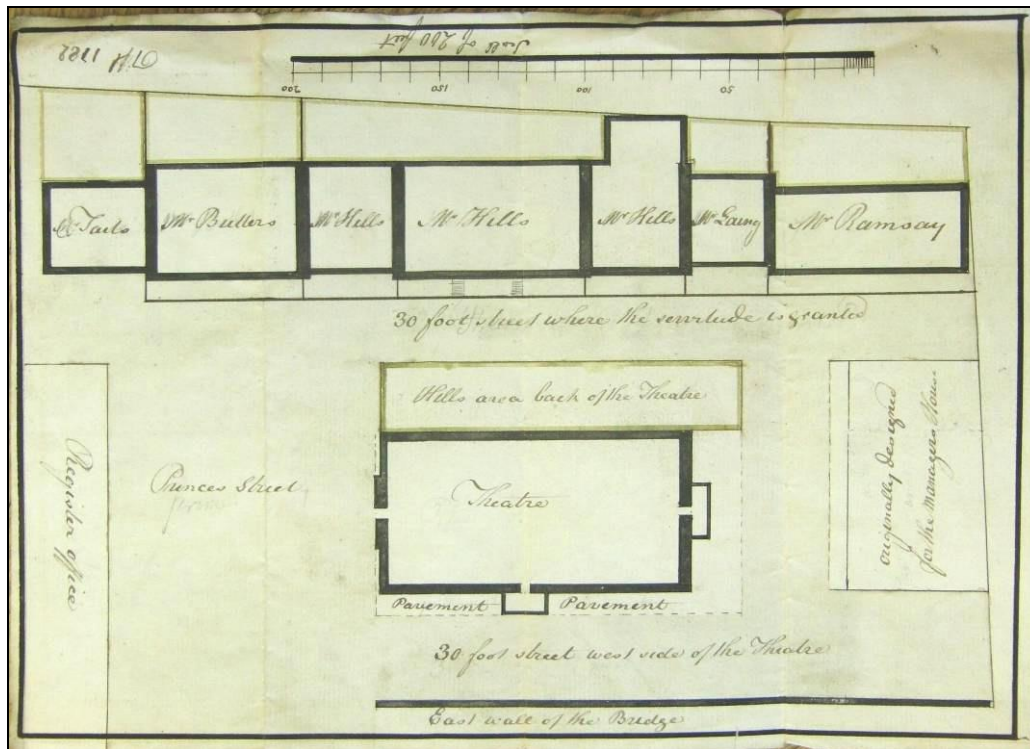 Scale of 200 feet
200 150 100 50
Tails
Mr Butters
Mr Hills
Mr Hills
Mr Hills
Mr Laing
Mr Ramsay
30 foot street where the servitude is granted
Hills area back of the Theatre
Register office
Princes Street
Theatre
originally designed
for the Managers House
Pavement
Pavement
30 foot street west side of the Theatre
East wall of the Bridge